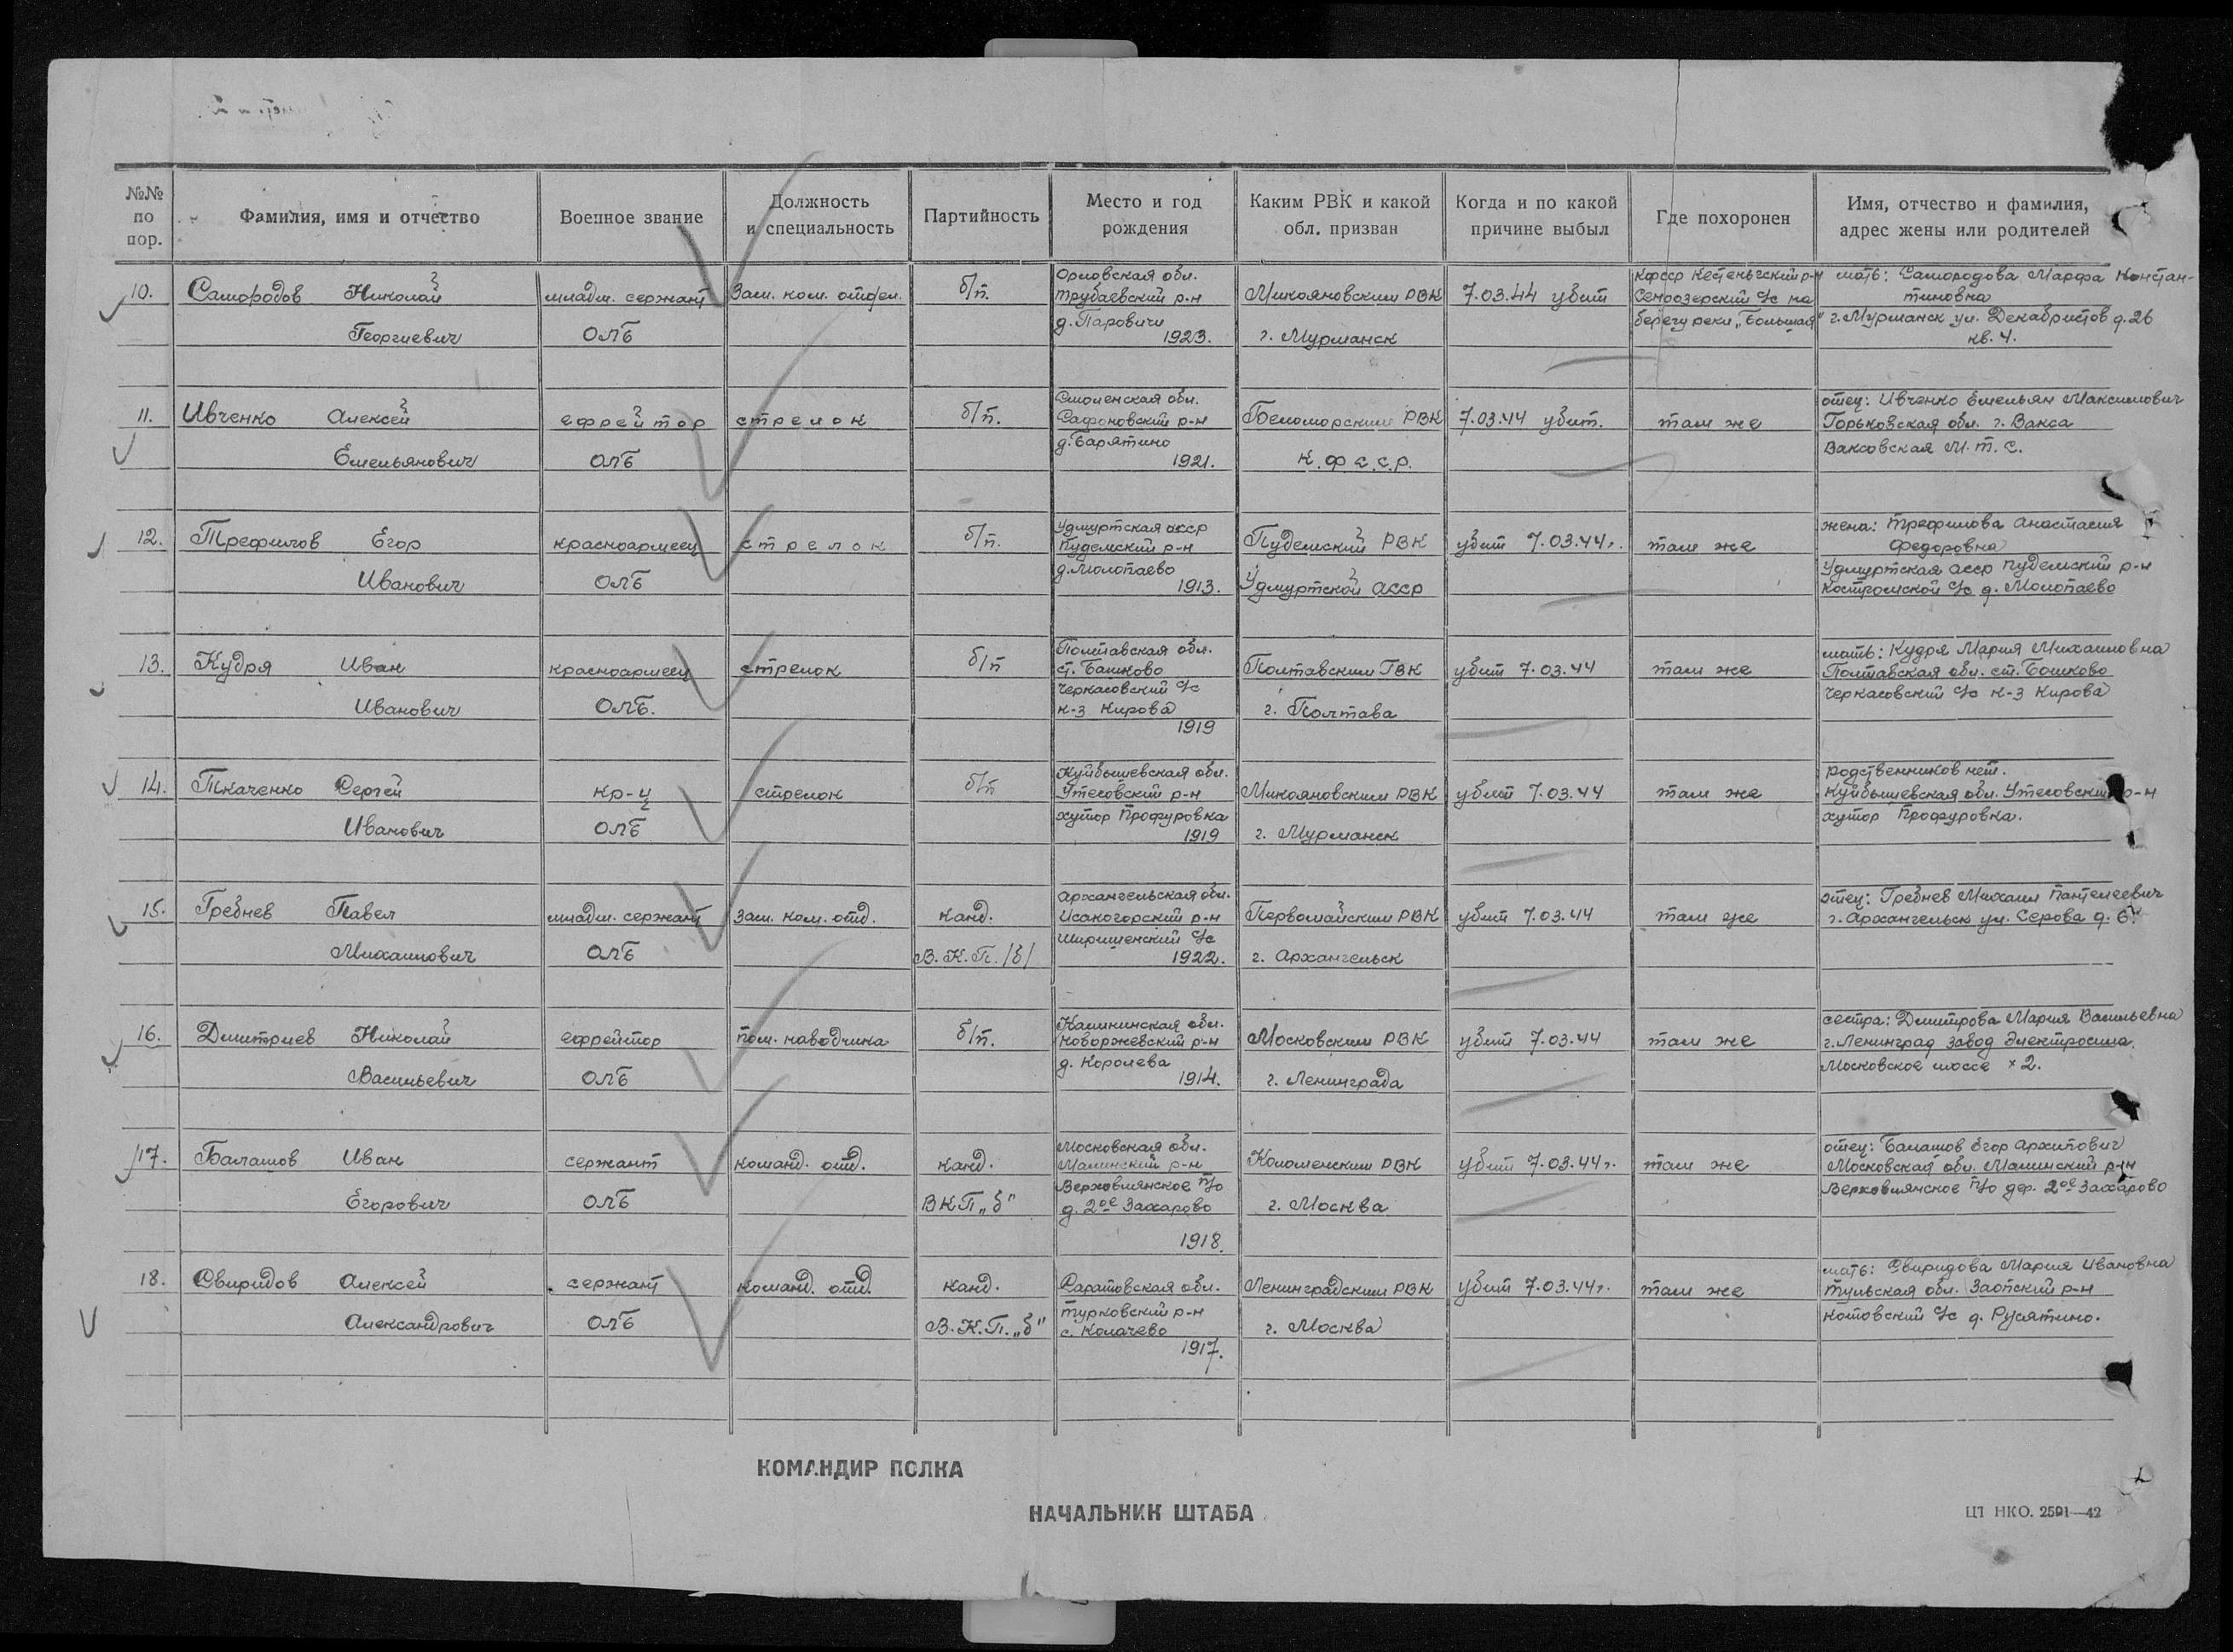 №№ по пор.
Фамилия, имя и отчество
Военное звание
Должность и специальность
Партийность
Место и год рождения
Каким РВК и какой обл. призван
Когда и по какой причине выбыл
Где похоронен
Имя, отчество и фамилия, адрес жены или родителей
10. Самородов Николай Георгиевич
младш. сержант ОЛБ
Зам. ком. отдел.
б/п.
Орловская обл.
Трубаевский р-н
д. Паровичи
1923.
Микояновским РВК
г. Мурманск
7.03.44 убит
КФССР Кестеньгский р-н
Сенозерский с/с на
берегу реки „Большая"
мать: Самородова Марфа Констан-
тиновна
г. Мурманск ул. Декабристов д. 26
кв. 4.
11. Ивченко Алексей Емельянович
ефрейтор ОЛБ
стрелок
б/п.
Смоленская обл.
Сафоновский р-н
д. Барятино
1921.
Беломорским РВК
К.Ф.С.С.Р.
7.03.44 убит.
там же
отец: Ивченко Емельян Максимович
Горьковская обл. г. Вакса
Ваксовская М.Т.С.
12. Трефилов Егор Иванович
красноармеец ОЛБ
стрелок
б/п.
Удмуртская АССР
Пудемский р-н
д. Молопаево
1913.
Пудемский РВК
Удмуртской АССР
убит 7.03.44г.
там же
жена: Трефилова Анастасия
Федоровна
Удмуртская АССР Пудемский р-н
Костромской с/с д. Молопаево
13. Кудря Иван Иванович
красноармеец ОЛБ.
стрелок
б/п
Полтавская обл.
ст. Башково
Черкасовский с/с
к-з Кирова
1919
Полтавским ГВК
г. Полтава
убит 7.03.44
там же
мать: Кудря Мария Михаиловна
Полтавская обл. ст. Бошково
Черкасовский с/с к-з Кирова
14. Ткаченко Сергей Иванович
кр-ц ОЛБ
стрелок
б/п
Куйбышевская обл.
Утесовский р-н
хутор Профуровка
1919
Микояновским РВК
г. Мурманск
убит 7.03.44
там же
родственников нет.
Куйбышевская обл. Утесовский р-н
хутор Профуровка.
15. Гребнев Павел Михаилович
младш. сержант ОЛБ
Зам. ком. отд.
канд.
В.К.П./б/
Архангельская обл.
Исакогорский р-н
Ширшенский с/с
1922.
Первомайским РВК
г. Архангельск
убит 7.03.44
там же
отец: Гребнев Михаил Пантелеевич
г. Архангельск ул. Серова д.
16. Дмитриев Николай Васильевич
ефрейтор ОЛБ
пом. наводчика
б/п.
Калининская обл.
Новоржевский р-н
д. Королева
1914.
Московским РВК
г. Ленинграда
убит 7.03.44
там же
сестра: Дмитрова Мария Васильевна
г. Ленинград завод Электросила.
Московское шоссе × 2.
17. Балашов Иван Егорович
сержант ОЛБ
команд. отд.
канд.
ВКП„б"
Московская обл.
Малинский р-н
Верховлянское п/о
д. 2ое Захарово
1918.
Коломенским РВК
г. Москва
убит 7.03.44г.
там же
отец: Балашов Егор Архипович
Московская обл. Малинский р-н
Верховлянское п/о дер. 2ое Захарово
18. Свиридов Алексей Александрович
сержант ОЛБ
команд. отд.
канд.
В.К.П.„б"
Саратовская обл.
Турковский р-н
с. Колачево
1917.
Ленинградским РВК
г. Москва
убит 7.03.44г.
там же
мать: Свиридова Мария Ивановна
Тульская обл. Заопский р-н
Котовский с/с д. Русятино.
КОМАНДИР ПОЛКА
НАЧАЛЬНИК ШТАБА
ЦТ НКО. 2591—42